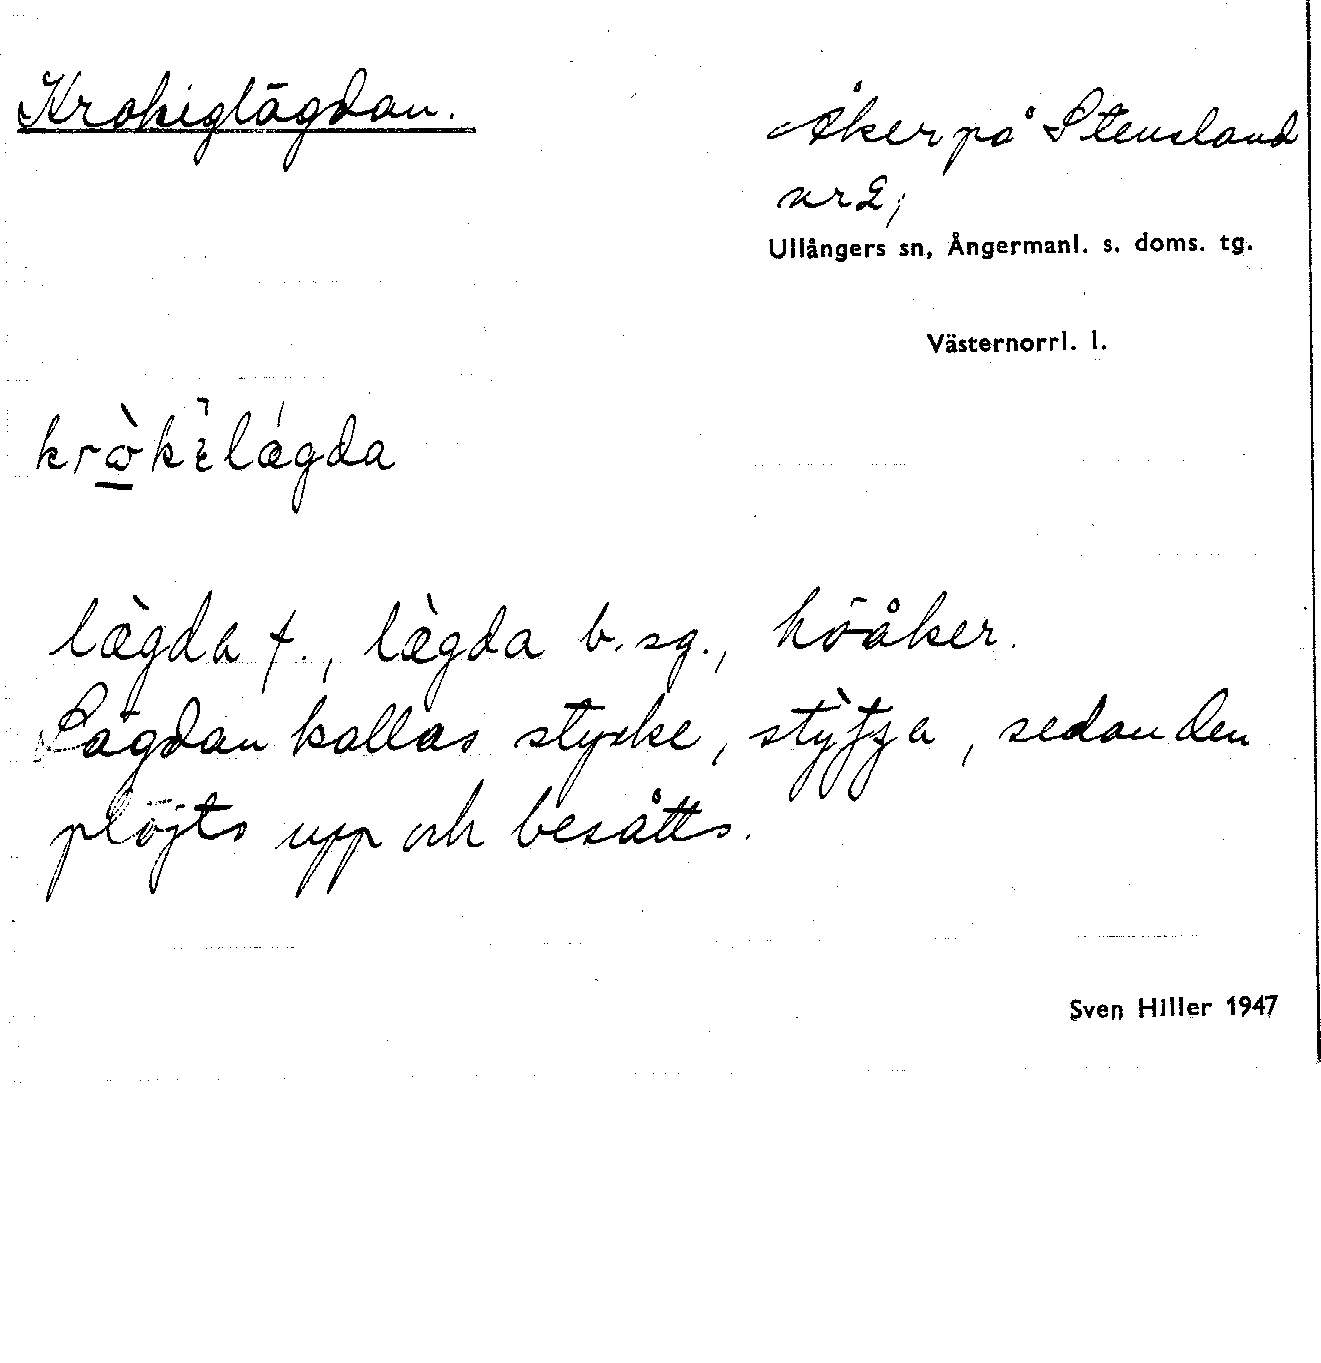 Krokiglägdan.
Åker på Stensland
nr 2,
Ullångers sn, Ångermanl. s. doms. tg.
Västernorrl. l.
lægda f., lægda b.sg., höåker.
Lägdan kallas stycke, sedan den
plöjts upp och besåtts.
Sven Hiller 1947